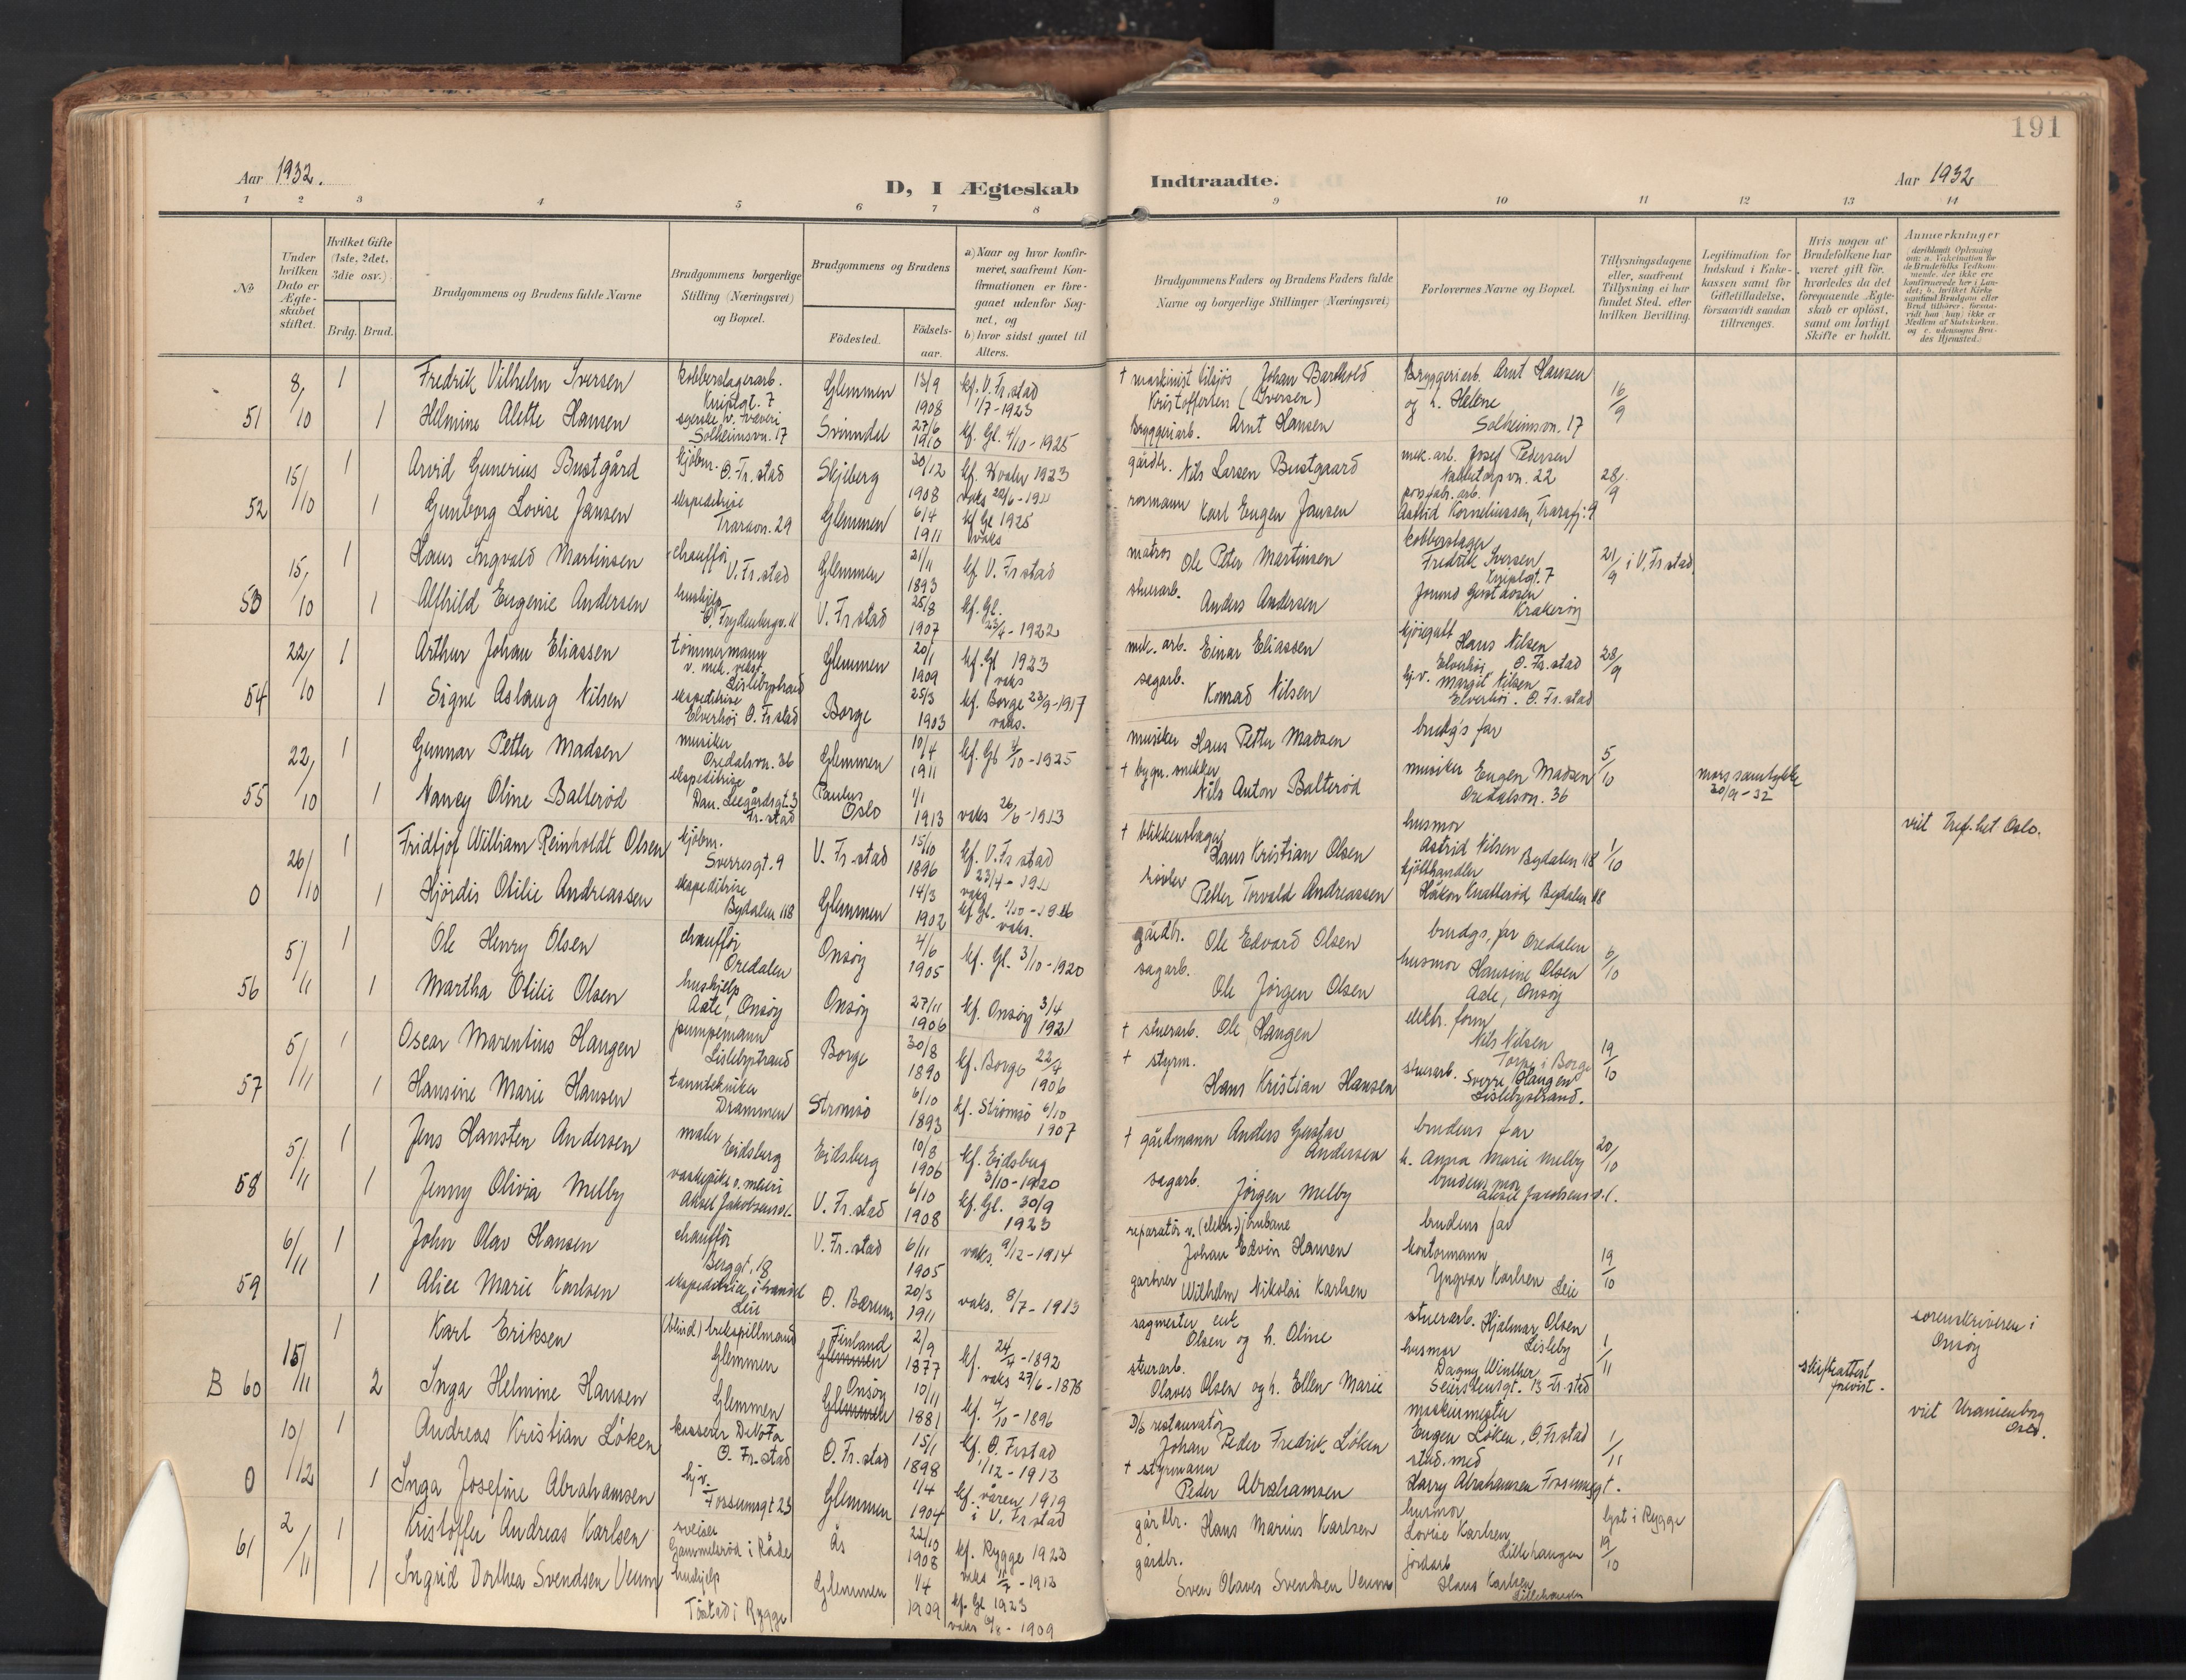 191
Aar 1932.
D, I Ægteskab Indtraadte.
Aar 1932
1 2 3 4 5 6 7 8 9 10 11 12 13 14
No
Under hvilken Dato er Ægteskabet stiftet.
Hvilket Gifte (1ste, 2det, 3die osv.).
Brdg. Brud.
Brudgommens og Brudens fulde Navne
Brudgommens borgerlige Stilling (Næringsvei) og Bopæl.
Brudgommens og Brudens
Fødested.
Fødselsaar.
a) Naar og hvor konfirmeret, saafremt Konfirmationen er foregaaet udenfor Sognet, og
b) hvor sidst gaaet til Alters.
Brudgommens Faders og Brudens Faders fulde Navne og borgerlige Stillinger (Næringsvei)
Forlovernes Navne og Bopæl.
Tillysningsdagene eller, saafremt Tillysning ei har fundet Sted, efter hvilken Bevilling.
Legitimation for Indskud i Enkekassen samt for Giftetilladelse, forsaavidt saadan tiltrænges.
Hvis nogen af Brudefolkene har været gift før, hvorledes da det foregaaende Ægteskab er opløst, samt om lovligt Skifte er holdt.
Anmerkninger
51 8/10 1 Fredrik Vilhelm Iversen kobberslagerarb. Glemmen 13/9 1908 kf. V. Fr.stad 1/7-1923 † maskinist tilsjøs Johan Barthold Kristoffersen (Iversen) Bryggeriarb. Arnt Hansen og h. Helene Solheimsvn. 17 16/9
1 Helmine Alette Hansen Solheimsvn. 17 Svinndal 27/6 1910 kf. Gl. 4/10-1925 Bryggeriarb. Arnt Hansen
52 15/10 1 Arvid Gunerius Bustgård kjøbm. Ø. Fr.stad Skjeberg 30/12 1908 kf. Hvaler 1923 gårdbr. Nils Larsen Bustgaard mek. arb. Josef Pedersen 28/9
1 Gunborg Lovise Jansen ekspeditrise Traravn. 29 Glemmen 6/4 1911 kf Gl 1925 vaks rormann Karl Eugen Jansen Astrid Korneliussen,
53 15/10 1 Hans Ingvald Martinsen chauffør V. Fr.stad Glemmen 21/11 1893 kf V. Fr.stad matros Ole Peter Martinsen kobberslager Fredrik Iversen 21/9 i V. Fr.stad
1 Alfhild Eugenie Andersen hushjelp V. Fr.stad 25/8 1907 kf. Gl. 23/4-1922 stuerarb. Anders Andersen Krakerøy
54 22/10 1 Arthur Johan Eliassen tømmermann v. mek. verkst. Lislebystrand Glemmen 20/1 1909 kf. Gl 1923 vaks mek. arb. Einar Eliassen Hans Nilsen Elverhøi Ø. Fr.stad 28/9
1 Signe Aslaug Nilsen ekspeditrise Elverhøi Ø. Fr.stad Borge 25/3 1903 kf. Borge 23/9-1917 vaks. sagarb. Konrad Nilsen Margit Nilsen Elverhøi. Ø. Fr.stad
55 22/10 1 Gunnar Petter Madsen musiker Oredalsvn. 36 Glemmen 10/4 1911 kf. Gl 4/10-1925 musiker Hans Petter Madsen brudg's far 5/10
1 Nancy Oline Balterød ekspeditrise Fr.stad Paulus Oslo 1/1 1913 vaks 26/6-1913 † bygn. snekker Nils Anton Balterød musiker Eugen Madsen Oredalsvn. 36 mors samtykke 30/9-32
0 26/10 1 Fridtjof William Reinholdt Olsen kjøbm. Sverresgt. 9 V. Fr.stad 15/10 1896 kf. V. Fr stad † blikkenslager Hans Kristian Olsen husmor Astrid Nilsen Bydalen 118 1/10 viet Tref. het Oslo.
1 Hjørdis Otilie Andreassen ekspeditrise Bydalen 118 Glemmen 14/3 1902 vaks. høvler Petter Torvald Andreassen Håkon Knatterød Bydalen 118
56 5/11 1 Ole Henry Olsen chauffør Oredalen Onsøy 4/6 1905 kf. Gl. 3/10-1920 gårdbr. Ole Edvard Olsen brudgs. far Oredalen 6/10
1 Martha Otilie Olsen hushjelp Aale, Onsøy Onsøy 27/11 1906 kf. Onsøy 3/4 1921 sagarb. Ole Jørgen Olsen husmor Hansine Olsen Aale, Onsøy
57 5/11 1 Oscar Marentius Haugen pumpemann Lislebystrand Borge 30/8 1890 kf. Borge 22/4 1906 † stuerarb. Ole Haugen elektr. form Nils Nilsen Torp i Borge 19/10
1 Hansine Marie Hansen tanntekniker Drammen Strømsø 6/10 1893 kf. Strømsø 6/10 1907 † styrm. Hans Kristian Hansen stuerarb. Sverre Haugen Lislebystrand.
58 5/11 1 Jens Hansten Andersen maler Eidsberg Eidsberg 10/8 1906 kf. Eidsberg 3/10-1920 † gårdmann Anders Gustav Andersen brudens far 20/10
1 Jenny Olivia Melby V. Fr.stad 6/10 1908 kf. Gl. 30/9 1923 sagarb. Jørgen Melby h. Anna Marie Melby brudens mor
59 6/11 1 John Olav Hansen chauffør Berggt. 18 V. Fr.stad 6/11 1905 vaks. 9/12-1914 reparatør v. (elektr.) jernbane Johan Edvin Hansen brudens far 19/10
1 Alice Marie Karlsen Leie Ø. Bærum 20/3 1911 vaks. 8/7-1913 gartner Wilhelm Nikolai Karlsen kontormann Yngvar Karlsen Leie
B 60 15/11 1 Karl Eriksen (blind) trekspillmand Glemmen Finland 2/9 1877 kf. 24/4-1892 vaks 27/6-1878 sagmester Olsen og h. Oline stuerarb. Hjalmar Olsen Lisleby 1/11 sorenskriveren i Onsøy
2 Inga Helmine Hansen Glemmen Onsøy 10/11 1881 kf. 4/10-1896 stuerarb. Olaves Olsen og h. Ellen Marie husmor Dagny Winther 13 Fr.stad skifteattest forevist.
0 10/12 1 Andreas Kristian Løken kasserer Ø. Fr.stad Ø. Fr.stad 15/1 1898 kf. Ø. Fr.stad 1/12-1913 D/s restauratør Johan Peder Fredrik Løken maskinmester Eugen Løken, Ø. Fr stad 1/11 viet Uranienborg Oslo.
1 Inga Josefine Abrahamsen hj.v. Fossumsgt 23 Glemmen 1/4 1904 kf. våren 1919 i V. Fr stad † styrmann Peder Abrahamsen stud. med Harry Abrahamsen Fossumsgt.
61 2/11 1 Kristoffer Andreas Karlsen sveiser Gammelsrød i Råde Ås 22/10 1908 kf. Rygge 1923 gårdbr. Hans Marius Karlsen husmor Lovise Karlsen Lillehaugen lyst i Rygge 19/10
1 Ingrid Dorthea Svendsen Veum hushjelp Tøstad i Rygge Glemmen 1/4 1909 kf. Gl 1923 gårdbr. Sven Olaves Svendsen Veum jordarb Hans Karlsen Lillehaugen